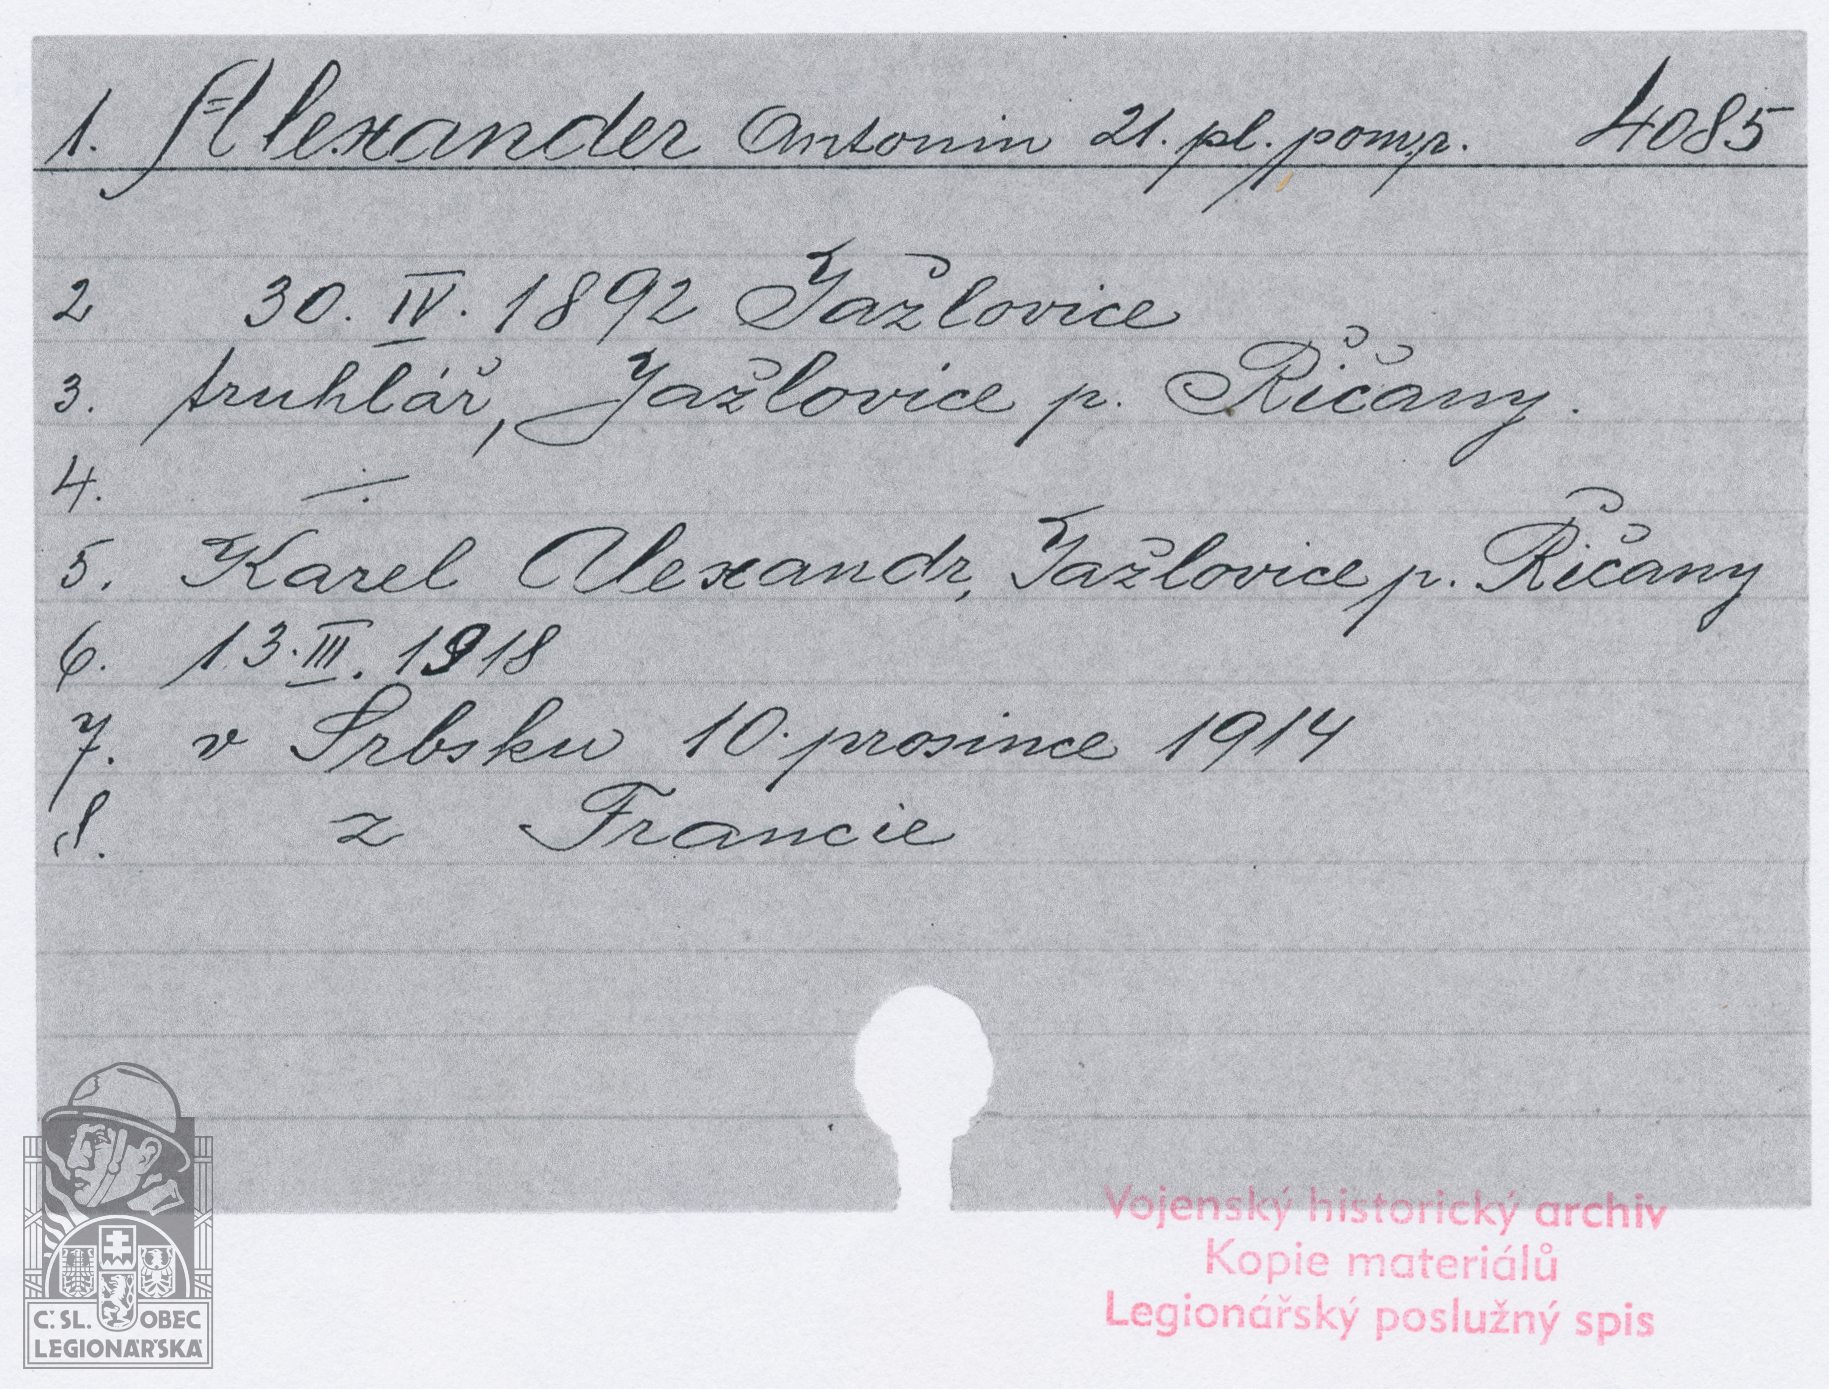 1. Alexander Antonin 21. pl. pomp. 4085
2 30. IV. 1892 Jažlovice
3. truhlář, Jažlovice p. Řičany.
4. ÷
5. Karel Alexandr, Jažlovice p. Řičany
6. 13. III. 1918
7. v Srbsku 10. prosince 1914
8. z Francie
Vojenský historický archiv
Kopie materiálů
Legionářský poslužný spis
Č.SL. OBEC
LEGIONÁŘSKÁ